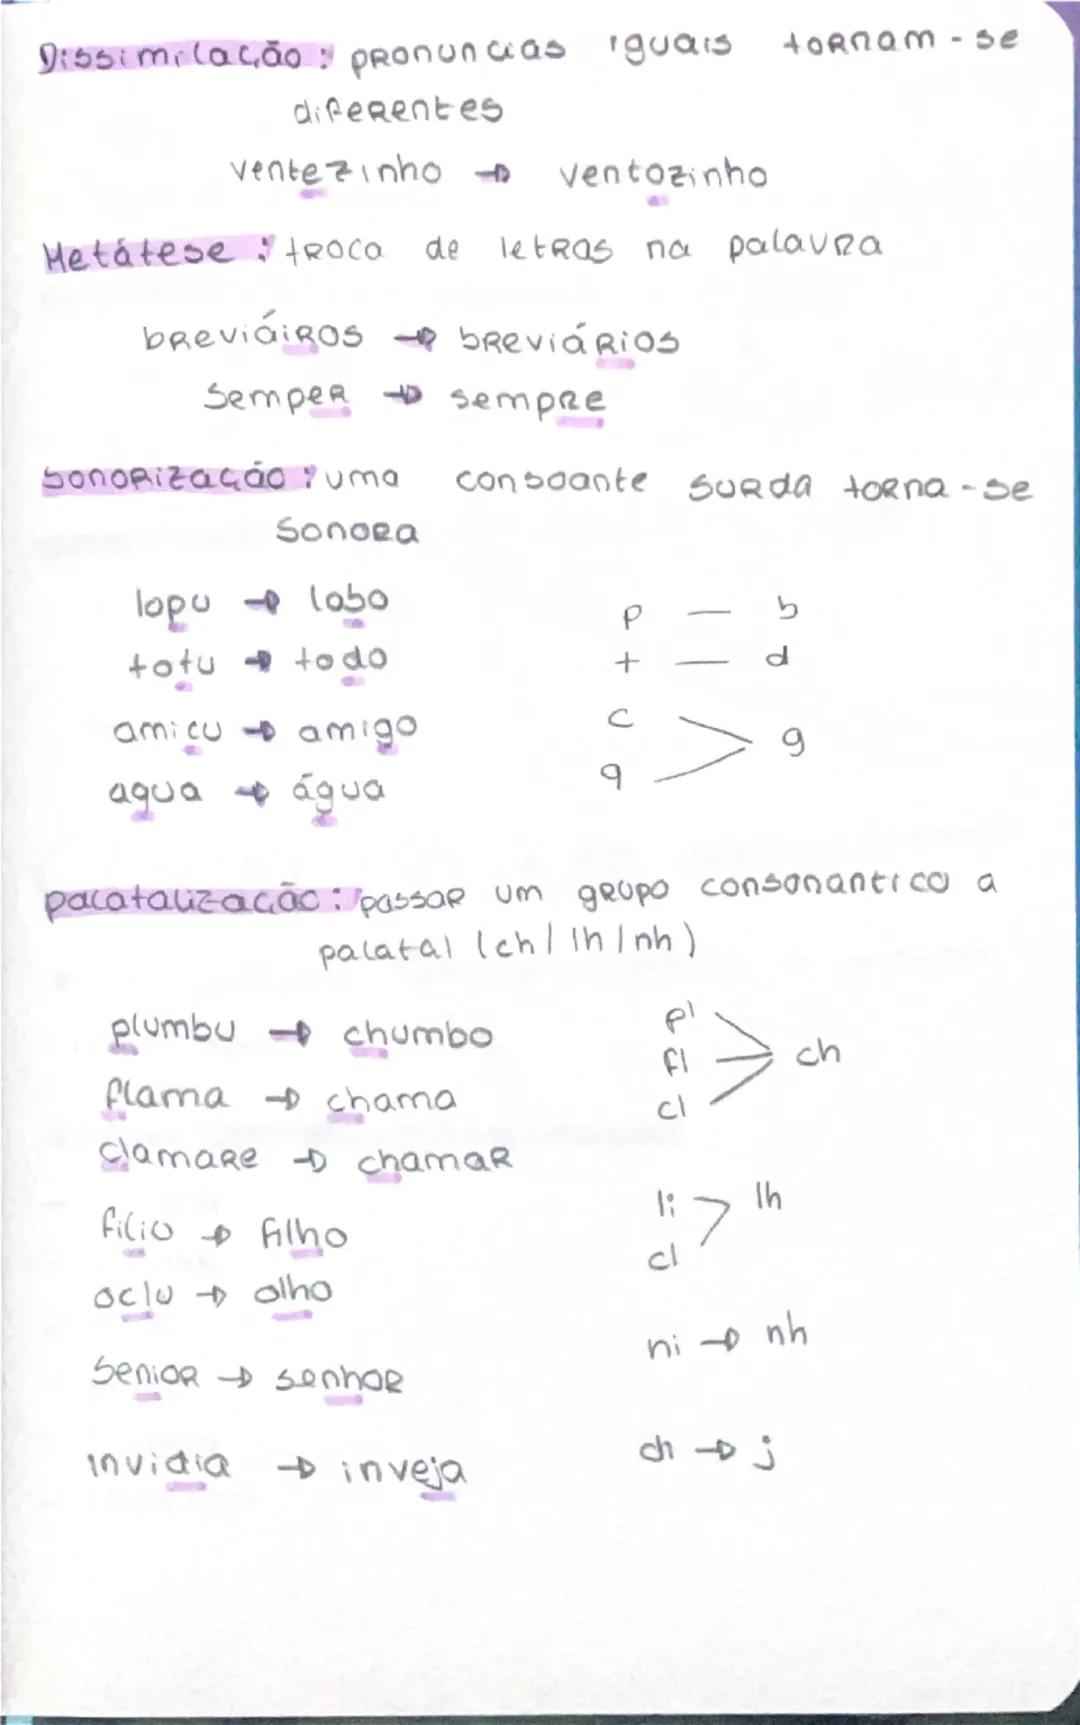 Dissimilação: pronuncias iguais tornam-se
diferentes
ventezinho → ventozinho
Metátese: troca de letras na palavra
breviáiros → breviários
Semper → sempre
Sonorização: uma consoante surda torna-se
Sonora
lopu → lobo
p — b
totu → todo
t — d
amicu → amigo
c
g
aqua → água
q
palatalização: passar um grupo consonantico a
palatal (ch/lh/nh)
plumbu → chumbo
pl
fl
ch
flama → chama
cl
clamare → chamar
li
lh
filiu → filho
cl
oclu → olho
ni → nh
Senior → senhor
di → j
invidia → inveja